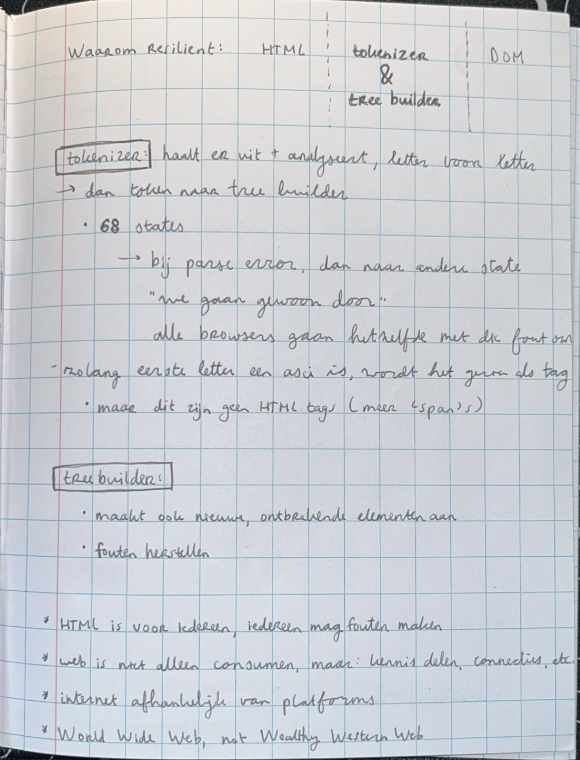 Waarom Resilient: HTML tokenizer DOM
&
tree builder
tokenizer: haalt er uit + analyseert, letter voor letter
→ dan token naar tree builder
• 68 states
→ bij parse error, dan naar andere state
"we gaan gewoon door"
alle browsers gaan hetzelfde met die fout om
- zolang eerste letter een asci is, wordt het gezien als tag
• maar dit zijn geen HTML tags (meer 'span's)
tree builder:
• maakt ook nieuwe, ontbrekende elementen aan
• fouten herstellen
* HTML is voor iedereen, iedereen mag fouten maken
* web is niet alleen consumen, maar: kennis delen, connecties, etc.
* internet afhankelijk van platforms
* World Wide Web, not Wealthy Western Web